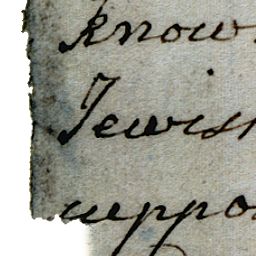 know
Jewish
suppo